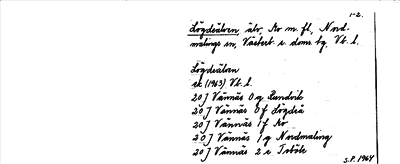 1-2.
Lögdeälven, älv, Åv m. fl., Nord-
malings sn, Västerb. s. doms. tg. Vb. l.
Lögdeälven
ek (1963) Vb. l.
20 J Vännäs 0 g Rundvik
20 J Vännäs 0 f Lögdeå
20 J Vännäs 1 f
20 J Vännäs 1 g Nordmaling
20 J Vännäs 2 e
S.P. 1964